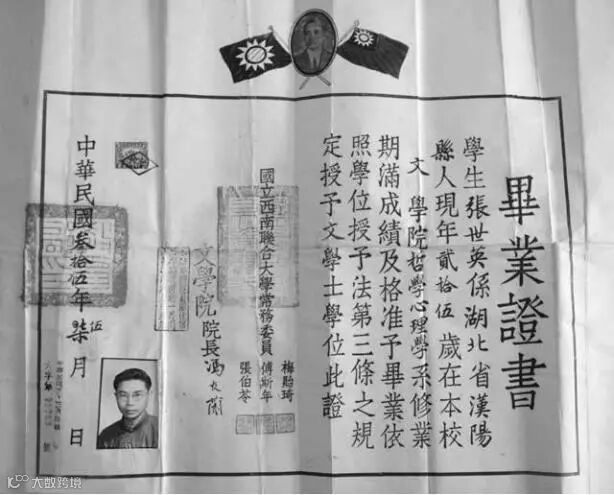 畢業證書
學生張世英係湖北省漢陽
縣人現年貳拾伍歲在本校
文學院哲學心理學系修業
期滿成績及格准予畢業依
照學位授予法第三條之規
定授予文學士學位此證
國立西南聯合大學常務委員
梅貽琦
傅斯年
張伯苓
文學院院長馮友蘭
中華民國叁拾伍年柒月伍日
大数跨境